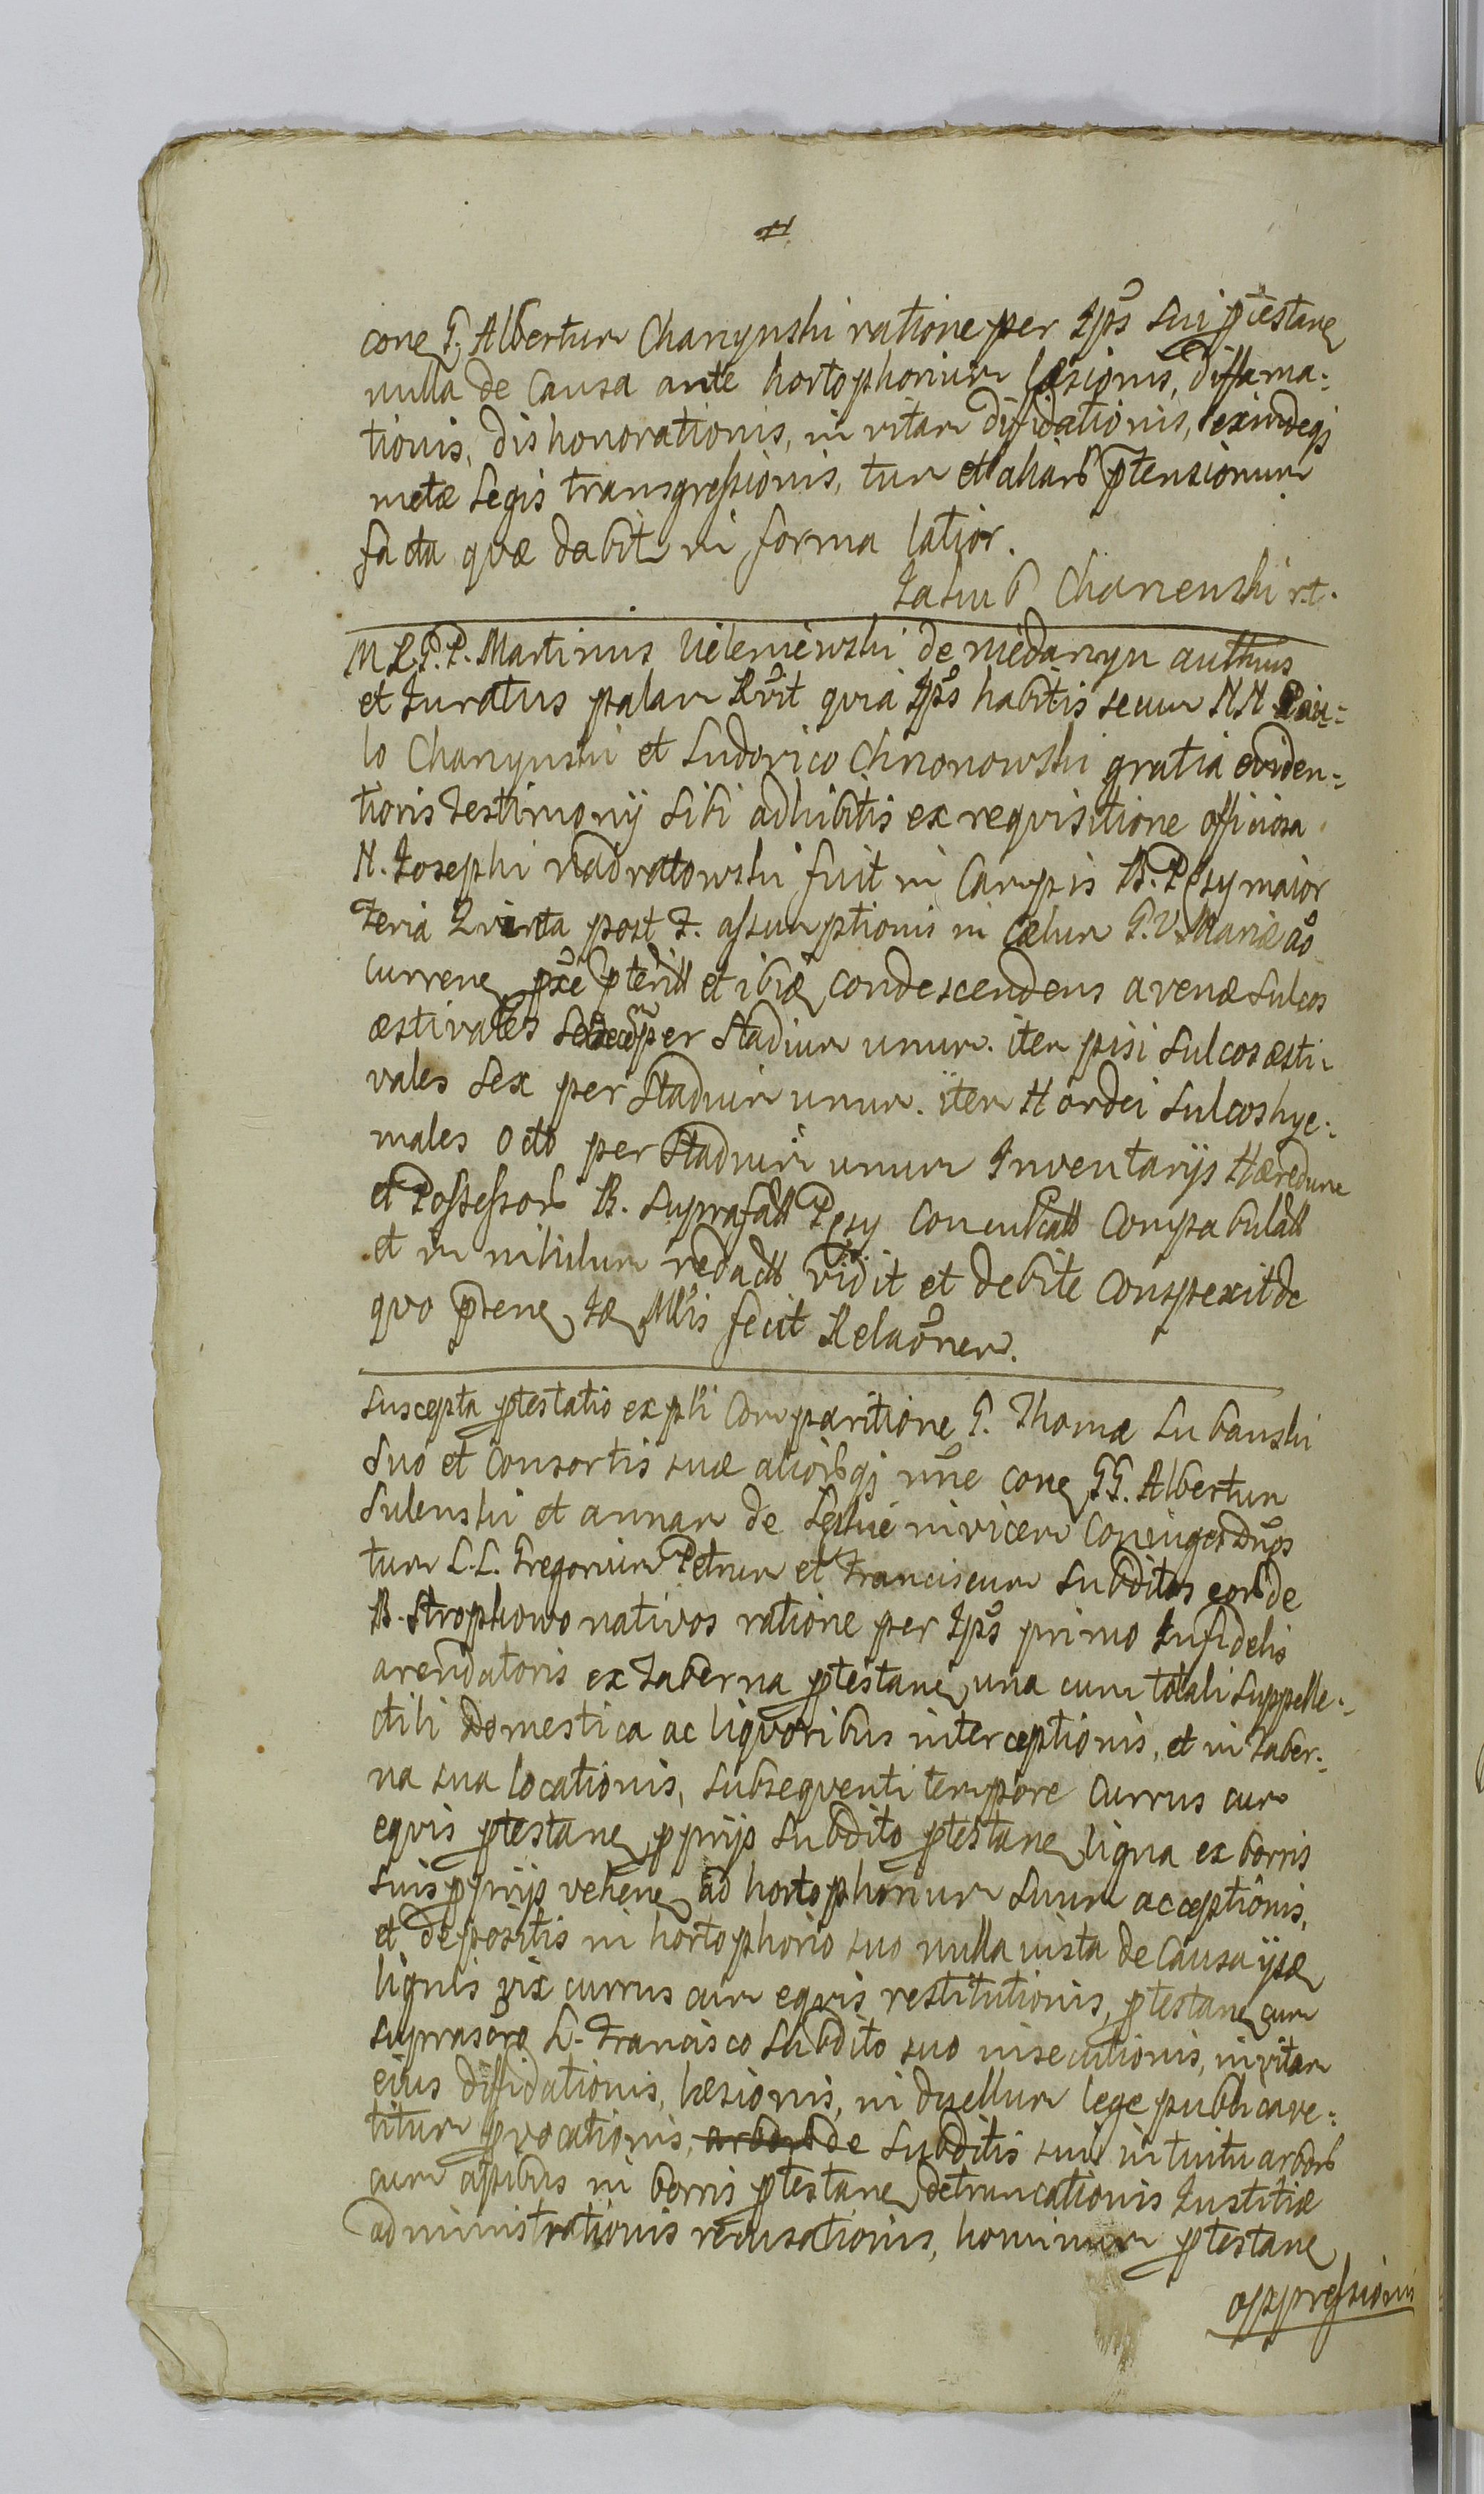 #
cone G. Albertum Chanynski ratione per Ips̃ sui p̃testane
nulla de Causa ante hortophorium læsionis, diffama=
tionis, dishonorationis, in vitam difidationis, eximdeqз
metæ Legis transgressionis, tum et aliarũ p̃tensionum
facta quæ dabit in forma latior.
Jakub Chanenski r.t.
M R. G. P. Martinus Uieleniewski de niedanyn authus
et Juratus palam Rṽit quia Ips̃ habitis secum NN Pau=
lo Chanynski et Ludovico Chronowski gratia eviden=
tioris Testimonij sibi adhibitis ex requisitione officiosa
N. Josephi Nadratowski fuit in Campis B. Pęsy maior
Feria Qvinta post F. assumptionis in Cælum B. V. Mariæ ao
currene px̃e p̃terit et ibiq condescendens avenæ Sulcos
æstivales per Stadium unum. item pisi Sulcos æsti=
vales Sex per Stadium unum. item Hordei Sulcos hye=
males octo per Stadium unum Inventarijs Hæredum
et Possessorũ B. Suprafatt Pęsy Conculcatt Compabulatt
et in nihilum redactt vidit et debite Conspexit de
quo p̃tene Mlis fecit Relaõnem.
Suscepta p̃testatio ex pli Comparitione G. Thomæ Lubanski
Suo et Consortis suæ aliorũqз nñe cone GG. Albertum
Sulenski et annam de Leskie invicem Coniuges Dños
tum L.L. Gregorium Petrum et Franciscum Subditos eorũde
B. Strophowo nativos ratione per Ips̃ primo Infidelis
arendatoris ex Taberna p̃testane una cum totali Suppelle=
ctili Domestica ac liqvoribus interceptionis, et in Taber=
na sua locationis, Subseqventi tempore Currus cum
eqvis p̃testane p̃prijs Subdito p̃testane ligna ex borris
Suis p̃prijs vehene ad hortophorium Suum acceptionis,
et depositis in hortophorio suo nulla iusta de Causa
lignis vix currus cum eqvis restitutionis, p̃testane cum
suprascro L. Francisco Subdito suo insecutionis, in vitam
eius diffidationis, læsionis, in duellum lege publica ve=
titum p̃vocationis, de Subditis suis intuitu arborũ
cum apibus in borris p̃testane detruncationis Iustitiæ
administrationis recusationis, hominum p̃testane
oppressionis